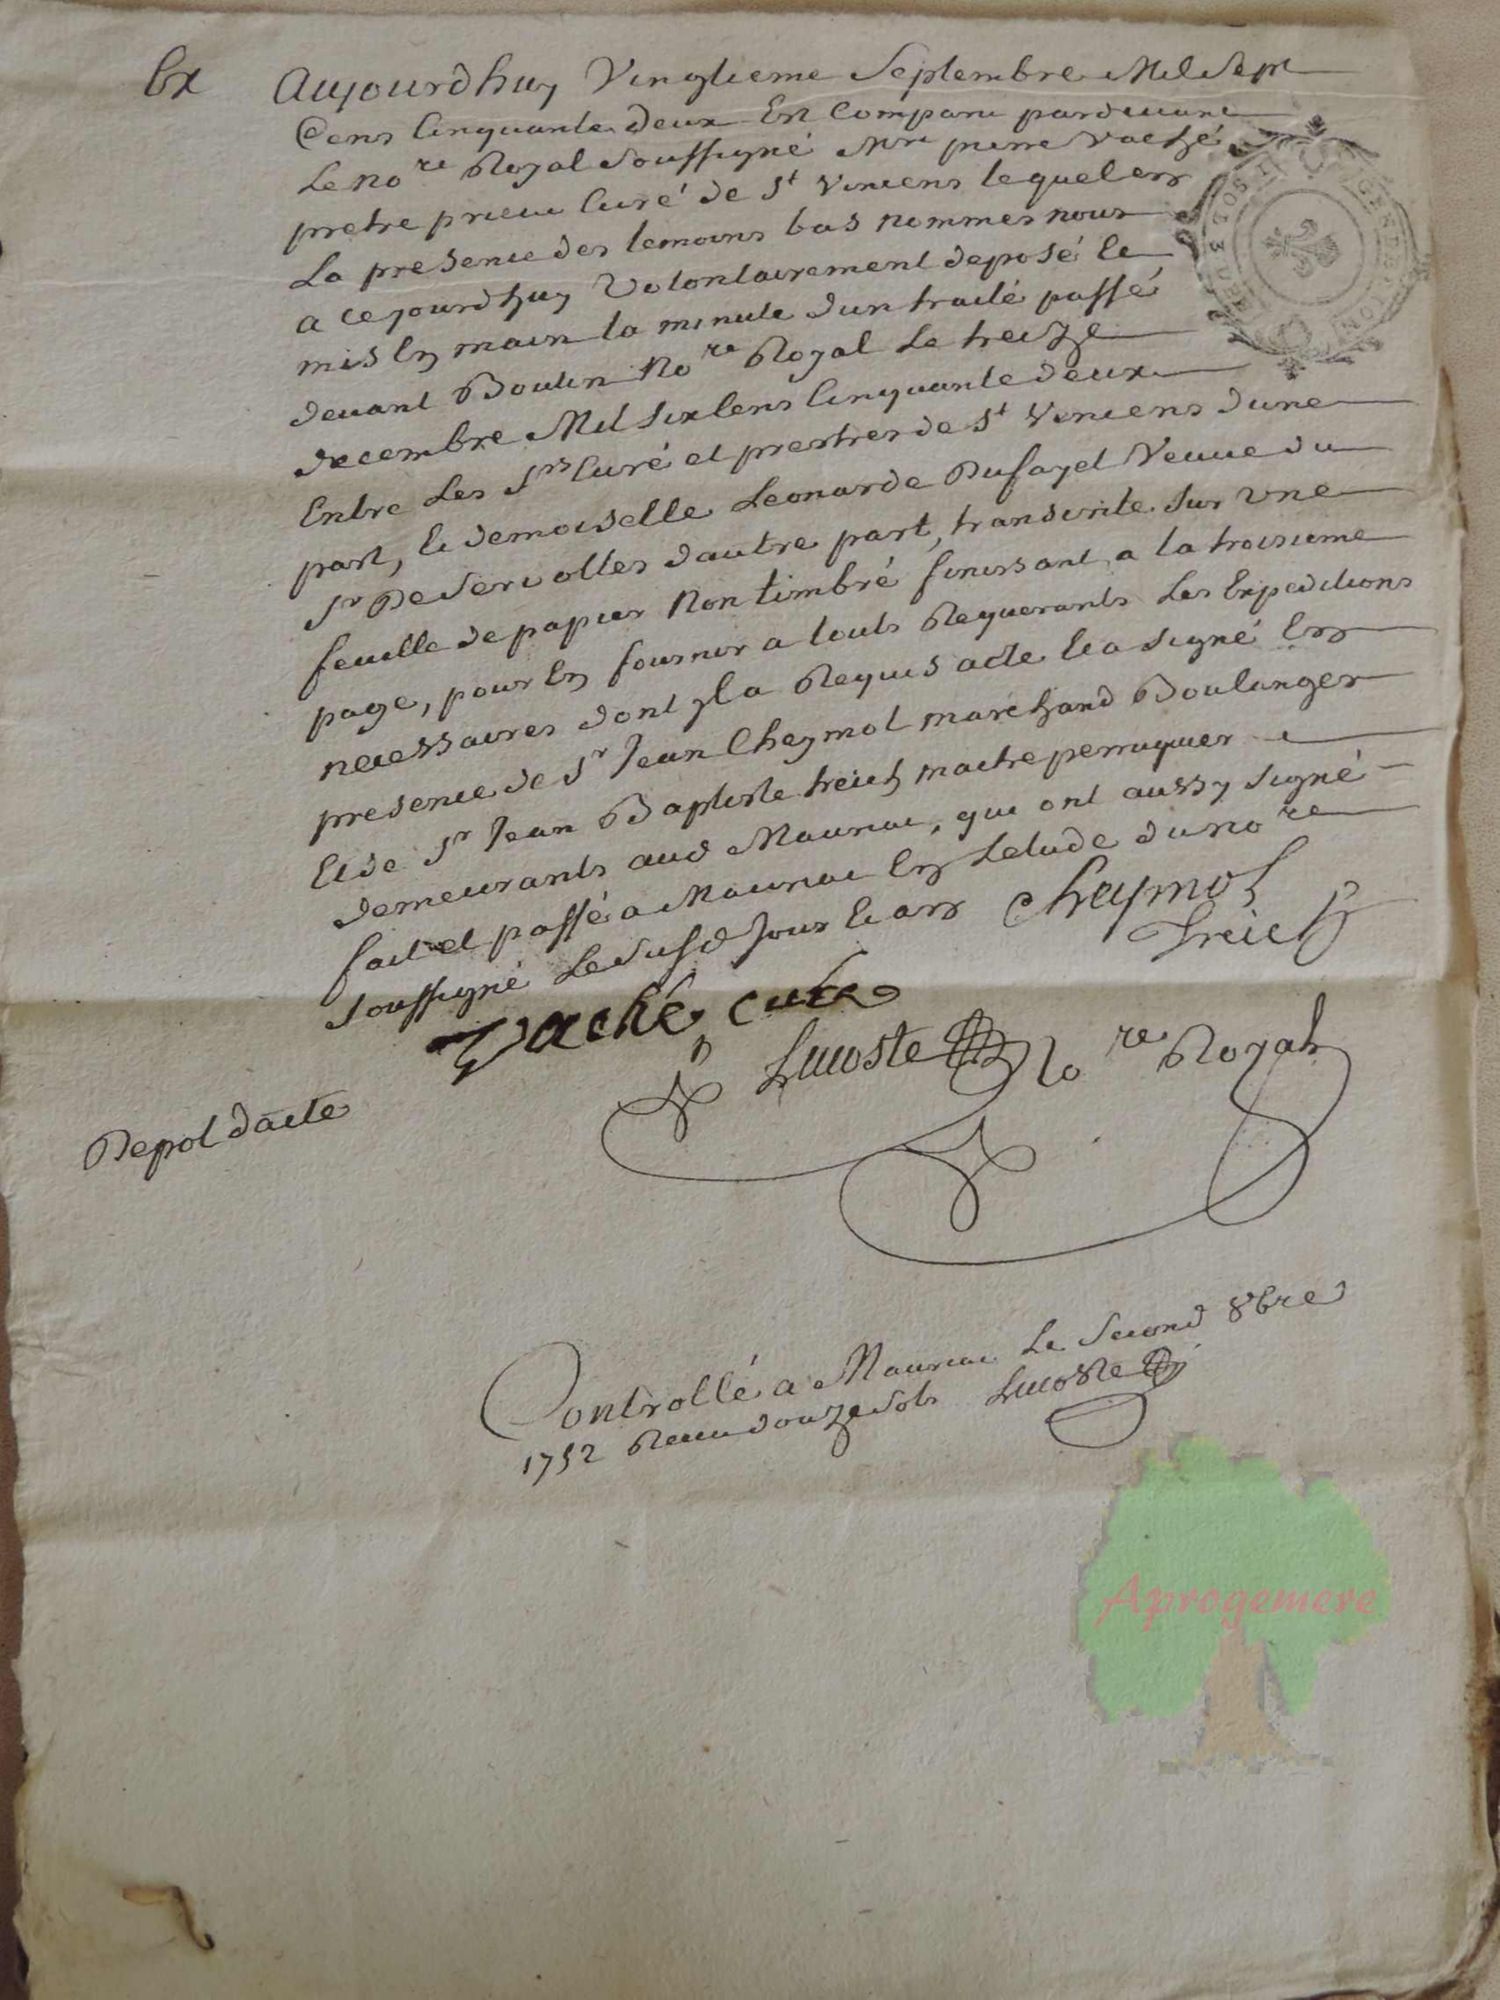 Ex Aujourdhuy Vingtieme Septembre Mil Sept
Cens Cinquante deux Est Comparu pardevant
Le no.re Royal Soussigné Mre pierre Vaché
pretre prieur Curé de St Vincens lequel en
La presence des temoins bas nommes nous
a cejourdhuy Volontairement deposé et
mis En main la minute dun traité passé
devant Boutin No.re Royal Le treize
decembre Mil Six Cens Cinquante deux
Entre Les Srs Curé et prestres de St Vincens dune
part, Et demoiselle Leonarde Dufayet Veuve du
Sr De Veriolles dautre part, transcrite sur Une
feuille de papier Non timbré finissant a la troisieme
page, pour En fournir a touts Requerants Les Expeditions
necessaires dont yl a Requis acte Et a Signé En
presence de Sr Jean Cheymol marchand Boulanger
Et de Sr Jean Baptiste treich maitre perruquier
demeurants aud Mauriac, qui ont aussy Signé
fait et passé a Mauriac En Letude du no.re
Soussigné Le Susd Jour Et an Cheymol
Treich
Vaché, curé
Lacoste No.re Royal
Depot dacte
Controllé a Mauriac Le Second 8bre
1752 Receu douze Sols Lacoste
GENERATION
Aprogemere